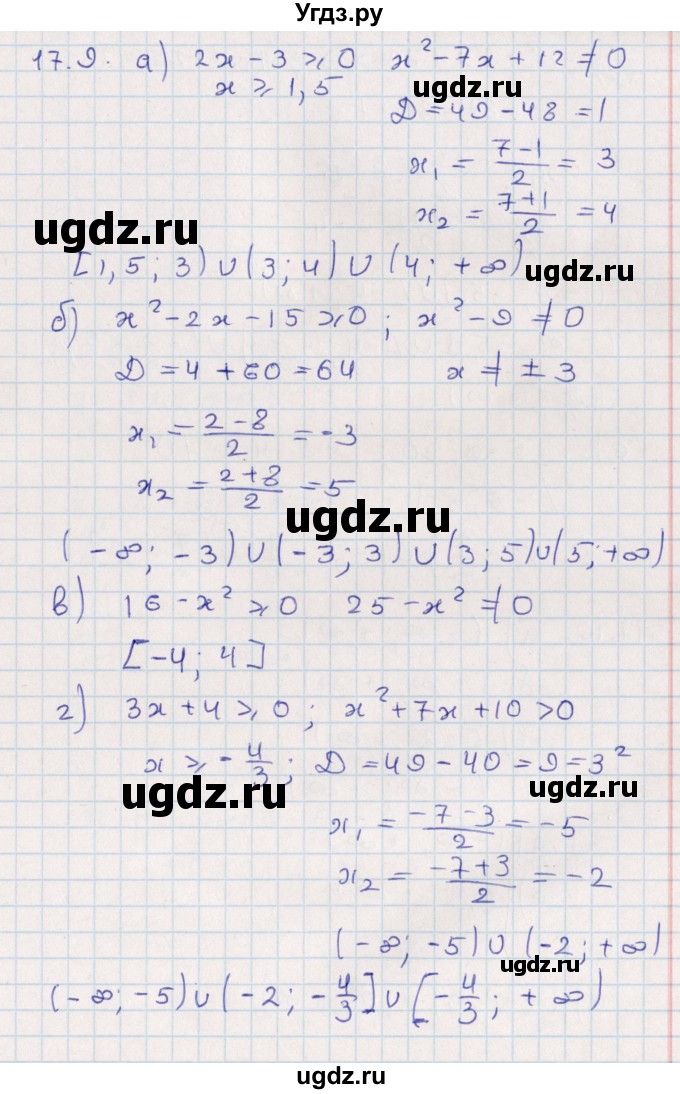 Угдз.ру
17.9. а) 2x - 3 ⩾ 0 x² - 7x + 12 ≠ 0
x ⩾ 1,5
ugdz.ru
Д = 49 - 48 = 1
x₁ = (7-1)/2 = 3
ugdz.ru
x₂ = (7+1)/2 = 4
ugdz.ru
[1,5; 3) ∪ (3; 4) ∪ (4; +∞)
ugdz.ru
б) x² - 2x - 15 ⩾ 0; x² - 9 ≠ 0
Д = 4 + 60 = 64 x ≠ ± 3
x₁ = (2-8)/2 = -3
x₂ = (2+8)/2 = 5
ugdz.ru
(-∞; -3) ∪ (-3; 3) ∪ (3; 5) ∪ (5; +∞)
в) 16 - x² ⩾ 0 25 - x² ≠ 0
ugdz.ru
[-4; 4]
г) 3x + 4 ⩾ 0; x² + 7x + 10 > 0
x ⩾ -4/3; Д = 49 - 40 = 9 = 3²
ugdz.ru
ugdz.ru
x₁ = (-7-3)/2 = -5
x₂ = (-7+3)/2 = -2
(-∞; -5) ∪ (-2; +∞)
ugdz.ru
(-∞; -5) ∪ (-2; -4/3] ∪ [-4/3; +∞)
ugdz.ru